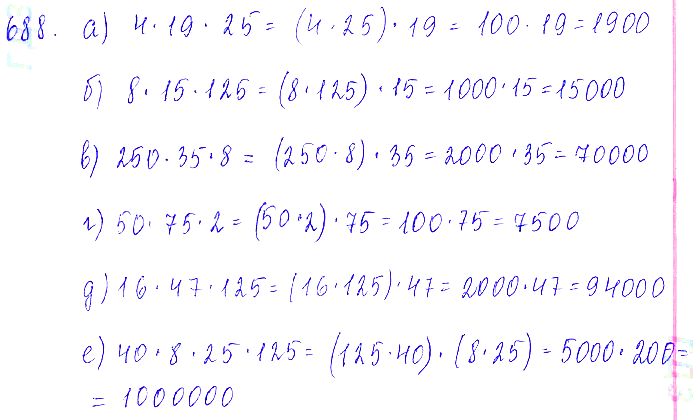 688. а) 4 · 19 · 25 = (4 · 25) · 19 = 100 · 19 = 1900
б) 8 · 15 · 125 = (8 · 125) · 15 = 1000 · 15 = 15000
в) 250 · 35 · 8 = (250 · 8) · 35 = 2000 · 35 = 70000
г) 50 · 75 · 2 = (50 · 2) · 75 = 100 · 75 = 7500
д) 16 · 47 · 125 = (16 · 125) · 47 = 2000 · 47 = 94000
е) 40 · 8 · 25 · 125 = (125 · 40) · (8 · 25) = 5000 · 200 =
= 1000000